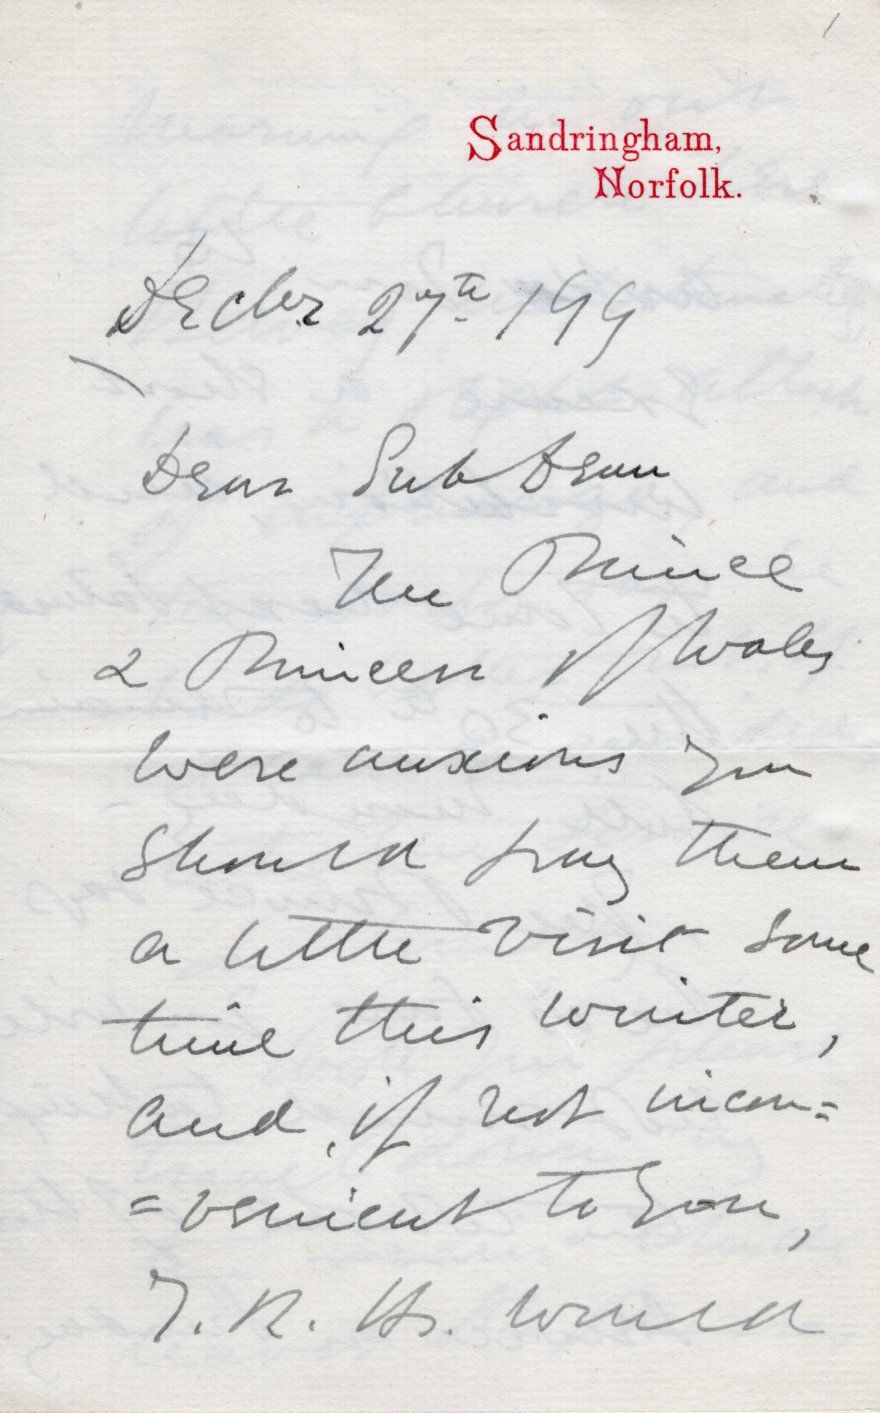 Sandringham,
Norfolk.
Decbr 27th /99
Dear Sub Dean
The Prince
& Princess of Wales
were anxious you
should pay them
a little visit some
time this winter,
and, if not incon=
=venient to you,
T. R. Hs. would